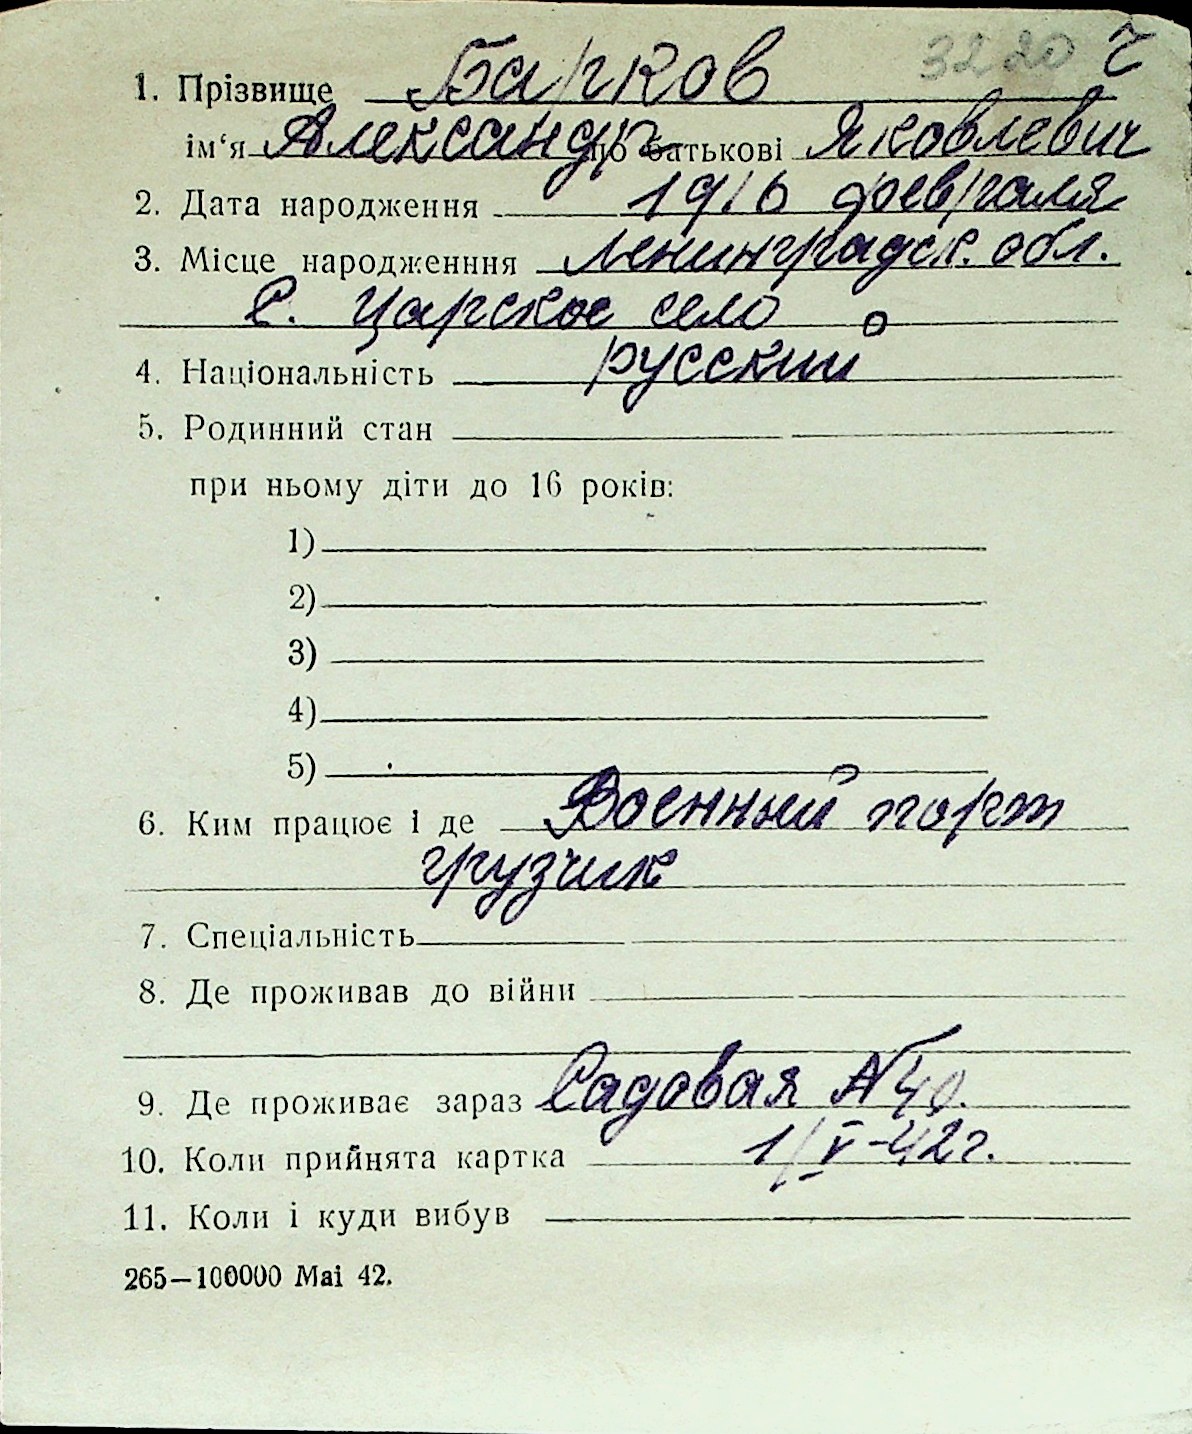 3220 г
1. Прізвище Барков
ім‘я Александр по батькові Яковлевич
2. Дата народження 1916 февраля
3. Місце народженння Ленинградск. обл.
С. Царское село
4. Національність русский
5. Родинний стан
при ньому діти до 16 років:
1)
2)
3)
4)
5)
6. Ким працює і де Военный порт
грузчик
7. Спеціальність
8. Де проживав до війни
9. Де проживає зараз Садовая № 40.
10. Коли прийнята картка 1/V-42г.
11. Коли і куди вибув
265—100000 Mai 42.